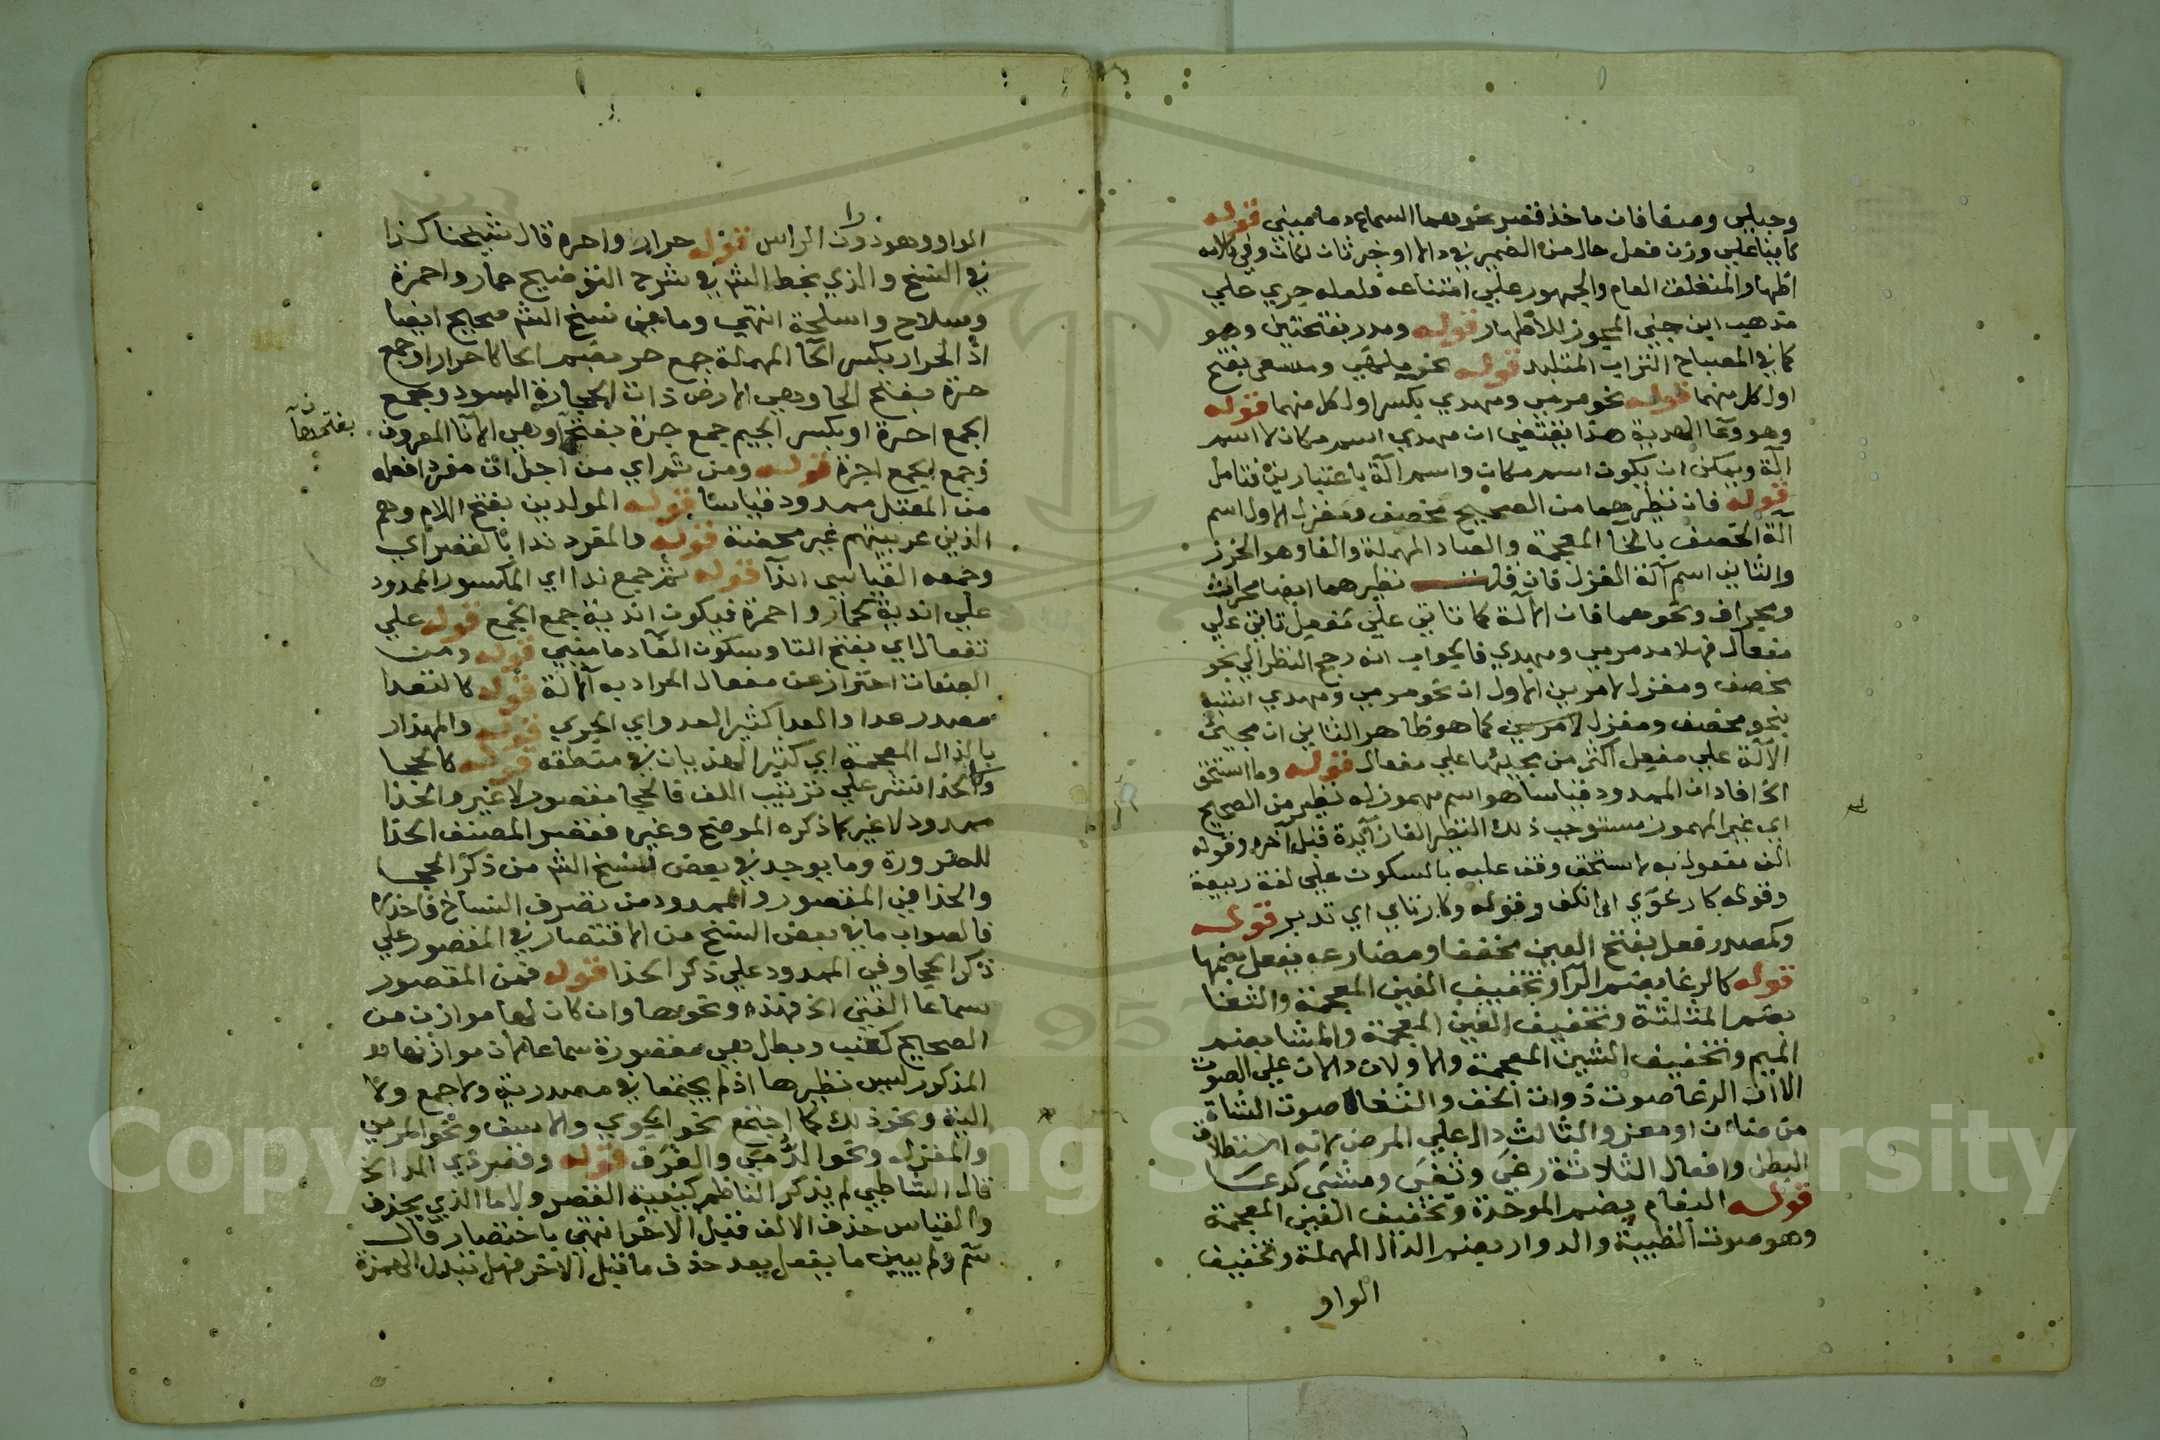 وحبلين ومتفاقان ماخذ فقصر نحوهما السماع دماميني قوله
كاينا علي وزن فعل حال من الضمير في دالا او خبر ثان لكان وفي كلامه
اظهار المتعلق العام والجمهور علي امتناعه فلعله جري علي
مذهب ابن جني المجوز للاظهار قوله ومدر بفتحتين وهو
كما في المصباح التراب المتلبد قوله نحو ملهي ومسعي بفتح
اول كل منهما قوله نحو مرمي ومهدي بكسر اول كل منهما قوله
وهو وعا الهدية هذا يقتضي ان مهدي اسم مكان لا اسم
الة ويمكن ان يكون اسم مكان واسم الة باعتبارين فتامل
قوله فان نظيرهما من الصحيح مخصف ومغزل الاول اسم
آلة الخصف بالخآ المعجمة والصاد المهملة والفا وهو الخرز
والثاني اسم آلة الغزل فان قلت نظيرهما ايضا محراث
ومجراف ونحوهما فان الالة كما تاتي علي مفعل تاتي علي
مفعال فهلا مد مرمي ومهدي فالجواب انه رجح النظر الي نحو
مخصف ومغزل لامرين الاول ان نحو مرمي ومهدي اشبه
بنحو مخصف ومغزل كما هو ظاهر الثاني ان مجيئ
الآلة علي مفعل اكثر من مجيئها علي مفعال قوله وما استحق
الخ افاد ان الممدود قياسا هو اسم مهموز له نظير من الصحيح
اي غير المهموز مستوجب ذلك النظير الفا زايدة قبل آخره وقوله
الف مفعول به لاستحق وقف عليه بالسكون علي لغة ربيعة
وقوله كارعوي اي انكف وقوله وكارتاي اي تدبر قوله
وكمصدر فعل بفتح العين مخففا ومضارعه يفعل بضمها
قوله كالرغا بضم الرآ وتخفيف الغين المعجمة والثغا
بضم المثلثة وتخفيف الغين المعجمة والمشا بضم
الميم وتخفيف الشين المعجمة والاولان دالان علي الصوت
الا ان الرغا صوت ذوات الخف والثغا صوت الشاة
من ضان او معز والثالث دال علي المرض لانه استطلاق
البطن وافعال الثلاثة رغي وثغي ومشي كدعا
قوله البغام بضم الموحدة وتخفيف الغين المعجمة
وهو صوت الظبية والدوار بضم الدال المهملة وتخفيف
الواو
الواو وهو دوران الراس قوله حرار واحره قال شيخنا كذا
في النسخ والذي بخط الشم في شرح التوضيح حمار واحمزة
وسلاح واسلحة انتهي وما في نسخ الشم صحيح ايضا
اذ الحرار بكسر الحآ المهملة جمع حر بضم الحا كاحرار او جمع
حرة بفتح الحا وهي الارض ذات الحجارة السود وجمع
الجمع احرة او بكسر الجيم جمع جرة بفتح وهي الانا المعروف
وجمع الجمع اجرة قوله ومن ثم اي من اجل ان مفرد افعله
من المعتل ممدود قياسا قوله المولدين بفتح اللام وهم
الذين عربيتهم غير محضة قوله والمفرد ندا بالقصر اي
وجمعه القياسي اندآ قوله ثم جمع ندا اي المكسور الممدود
علي اندية كحمار واحمزة فيكون اندية جمع الجمع قوله علي
تفعال اي بفتح التا وسكون الفآ دماميني قوله ومن
الصفات احتراز عن مفعال المراد به الالة قوله كالتعدا
مصدر عدا والعدا كثير العدو اي الجري قوله والمهذار
بالذال المعجمة اي كثير الهذيان في منطقه قوله كالحجا
وكالحذا نشر علي ترتيب اللف فالحجا مقصور لا غير والحذا
ممدود لا غير كما ذكره الموضح وغيره فقصر المصنف الحذا
للضرورة وما يوجد في بعض نسخ الشم من ذكر الحجا
والحذا في المقصور والممدود من تصرف النساخ فاحذره
فالصواب ما في بعض النسخ من الاقتصار في المقصور علي
ذكر الحجا وفي الممدود علي ذكر الحذا قوله فمن المقصور
سماعا الفتي الخ فهذه ونحوها وان كان لها موازن من
الصحيح كعنب وبطل وهي مقصورة سماعا لان موازنها
المذكور ليس نظيرها اذ لم يجتمعا في مصدرية ولا جمع ولا
الية ونحو ذلك كما اجتمع نحو الجوي والاسف ونحو المرمي
والمغزل ونحو الدمي والغرف قوله وقصر ذي المد الخ
قال الشاطبي لم يذكر الناظم كيفية القصر ولا ما الذي يحذف
والقياس حذف الالف قبل الاخر انتهي باختصار قال
شم ولم يبين ما يفعل بعد حذف ما قبل الاخر فهل تبدل الهمزة